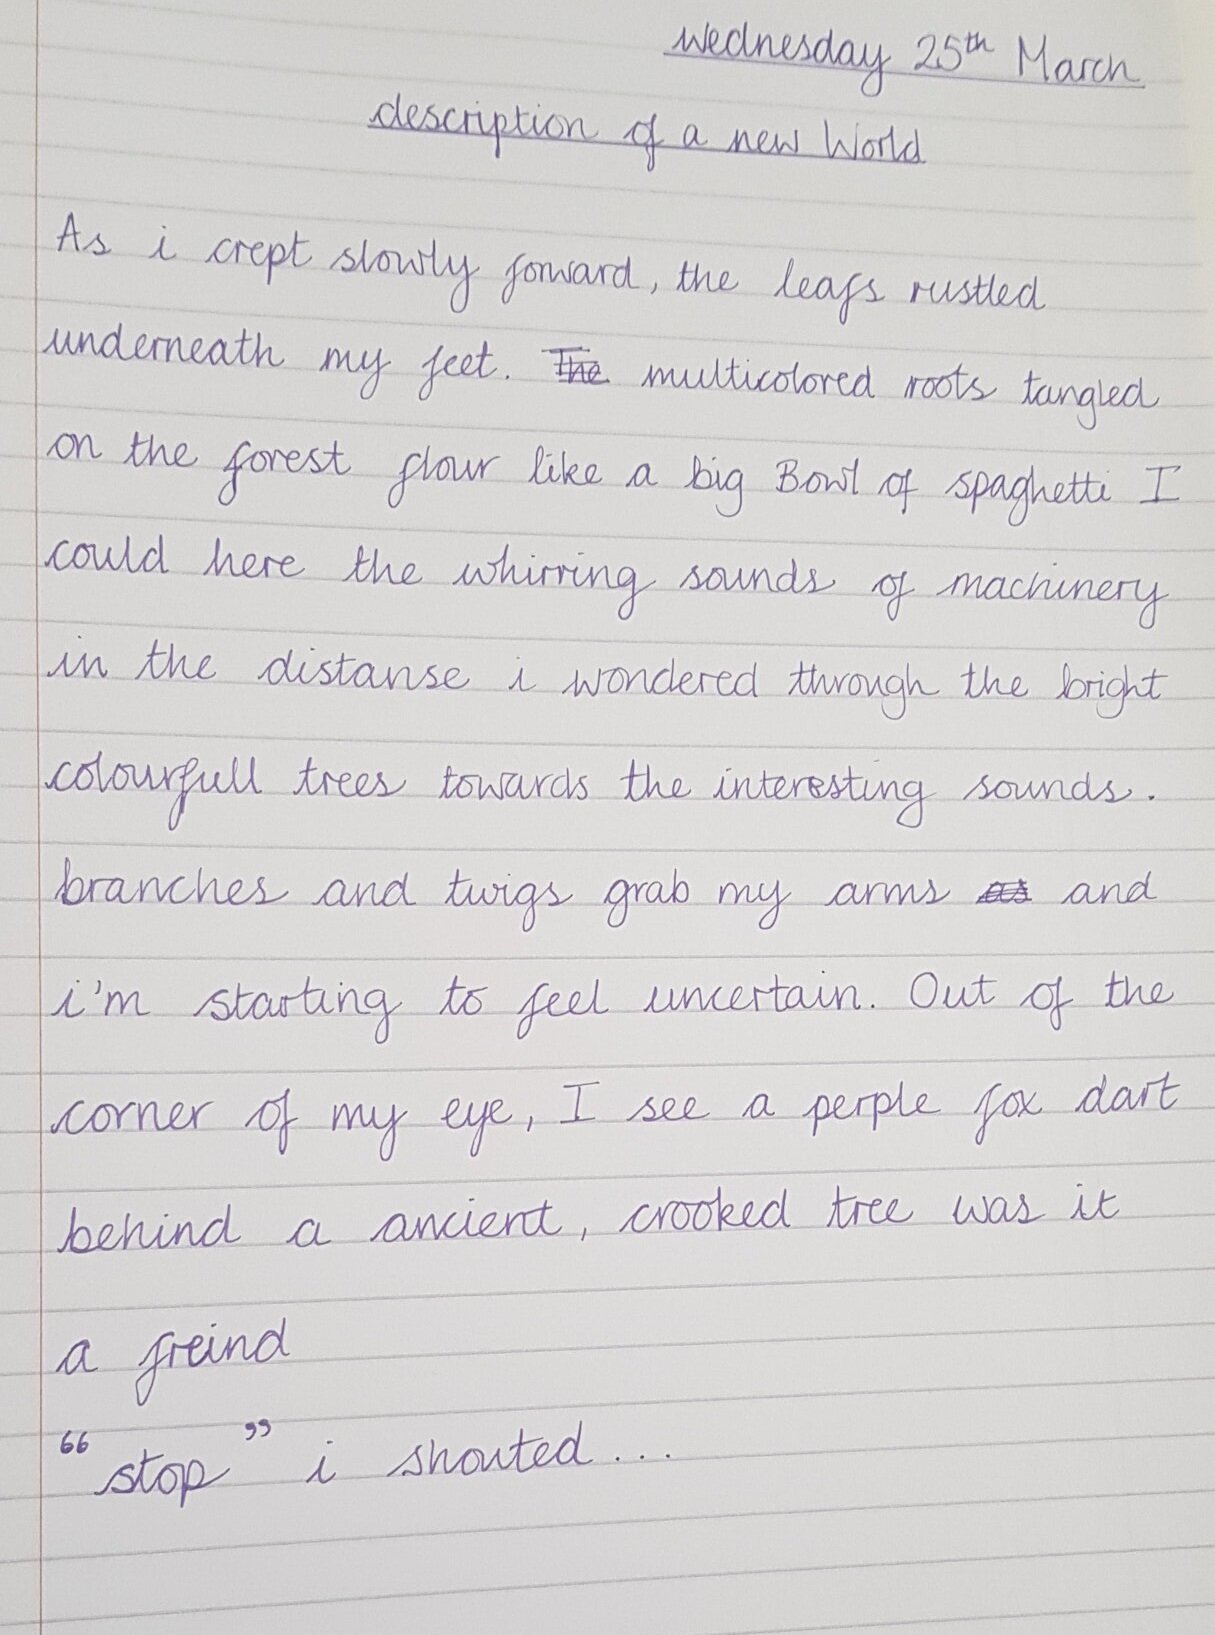 Wednesday 25th March
description of a new World
As i crept slowly forward, the leafs rustled
underneath my feet. The multicolored roots tangled
on the forest flour like a big Bowl of spaghetti I
could here the whirring sounds of machinery
in the distanse i wondered through the bright
colourfull trees towards the interesting sounds.
branches and twigs grab my arms and
i'm starting to feel uncertain. Out of the
corner of my eye, I see a perple fox dart
behind a ancient, crooked tree was it
a freind
“stop” i shouted...